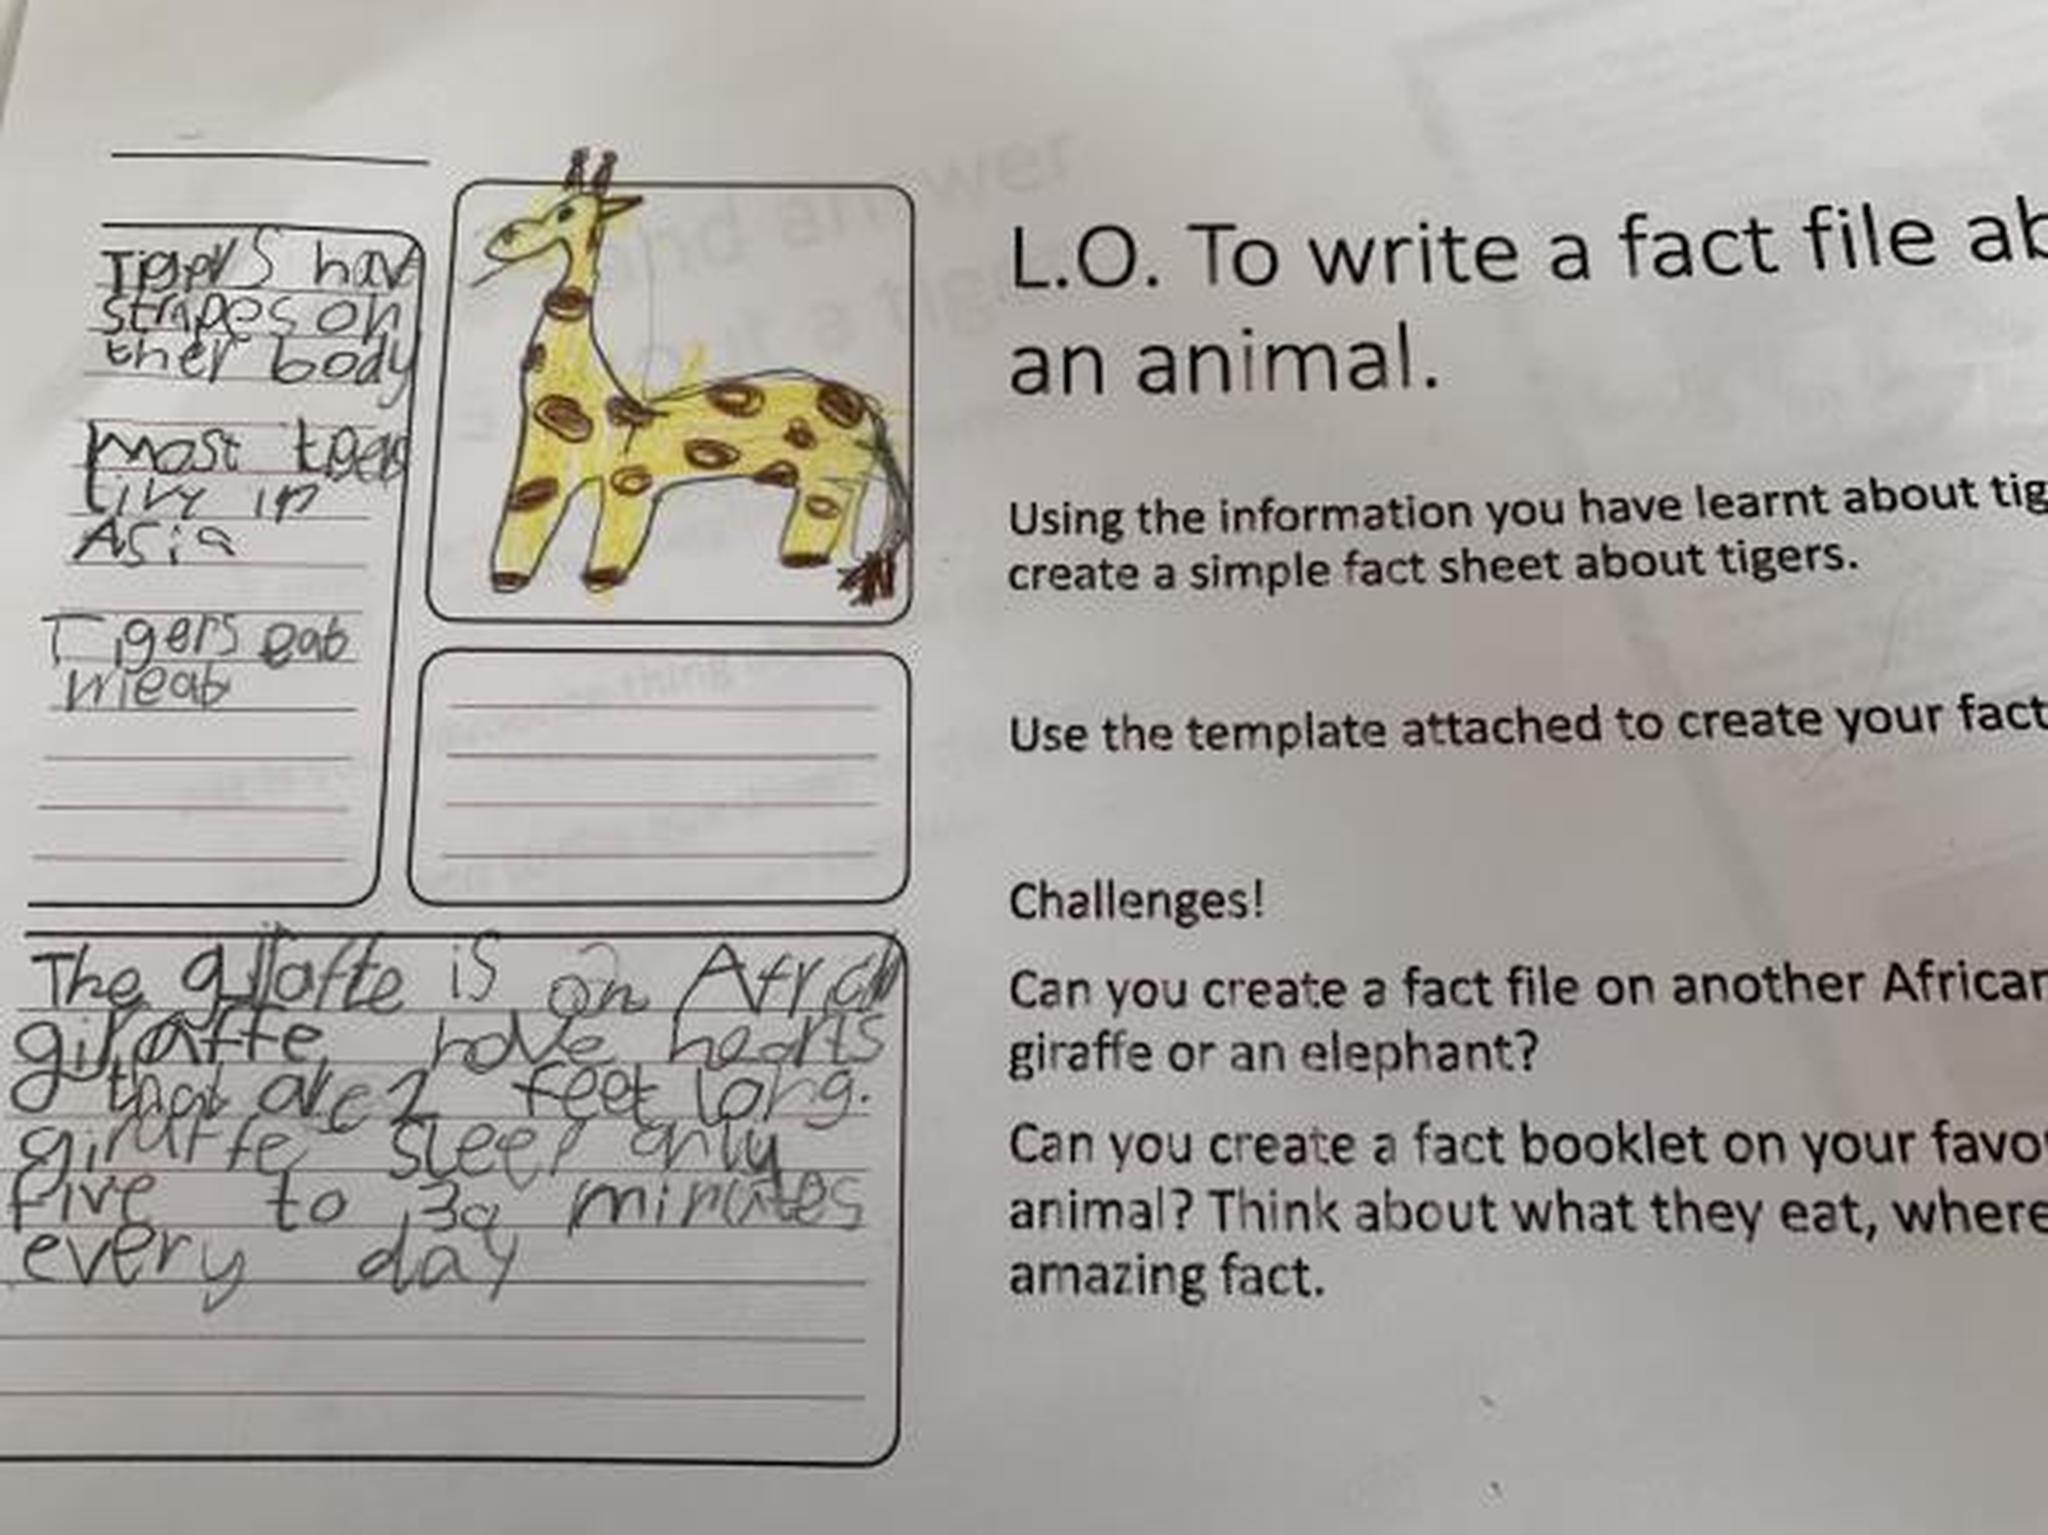 Tigers hav
stripes on
ther body
Most tgers
livy in
Asia
Tigers eat
meat
The giraffe is an African
giraffe have hearts
that are 2 feet long.
giraffe sleep only
five to 30 minutes
every day
L.O. To write a fact file ab
an animal.
Using the information you have learnt about tig
create a simple fact sheet about tigers.
Use the template attached to create your fact
Challenges!
Can you create a fact file on another African
giraffe or an elephant?
Can you create a fact booklet on your favo
animal? Think about what they eat, where
amazing fact.